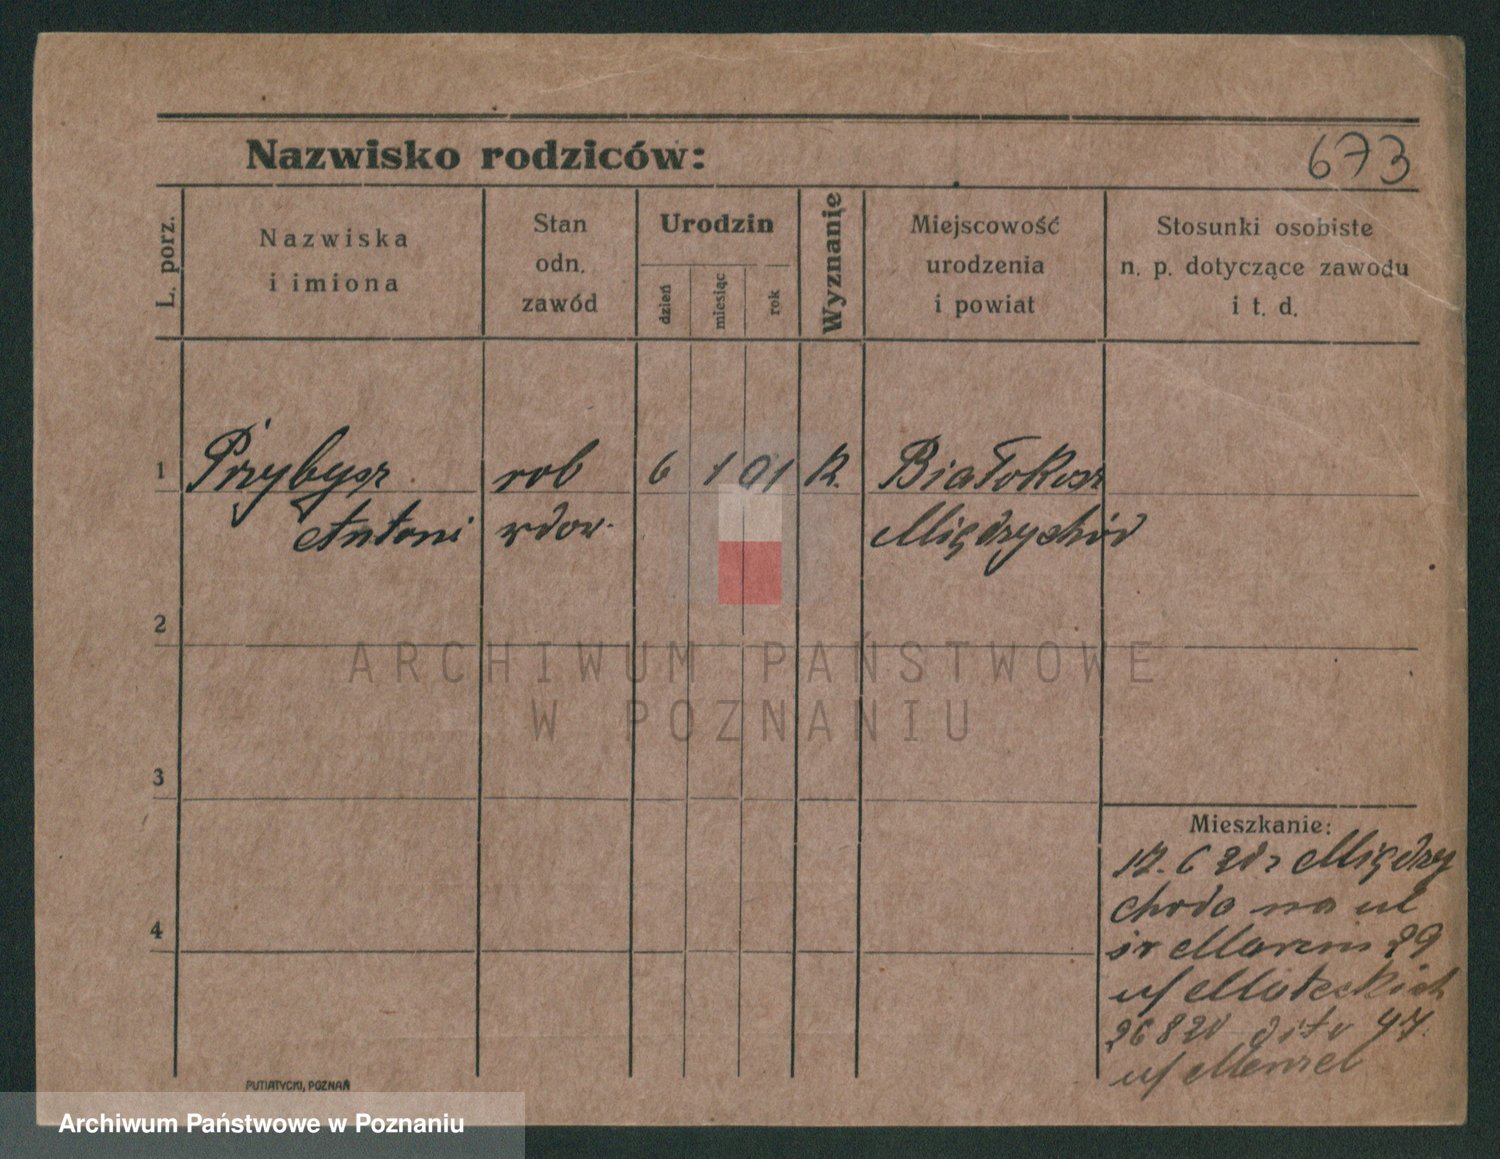 Nazwisko rodziców:
673
L. porz.
Nazwiska
i imiona
Stan
odn.
zawód
Urodzin
dzień
miesiąc
rok
Wyznanie
Miejscowość
urodzenia
i powiat
Stosunki osobiste
n. p. dotyczące zawodu
i t. d.
1 Przybysz rob 6 1 91 K. Białokosz
Antoni wdow. Międzychód
2
ARCHIWUM PAŃSTWOWE
W POZNANIU
3
Mieszkanie:
12. 6 20 z Między
choda na ul
św Marcin 29
u/ Małeckich
4
26 8 20 dito 47.
u/ Menzel
PUTIATYCKI, POZNAŃ
Archiwum Państwowe w Poznaniu